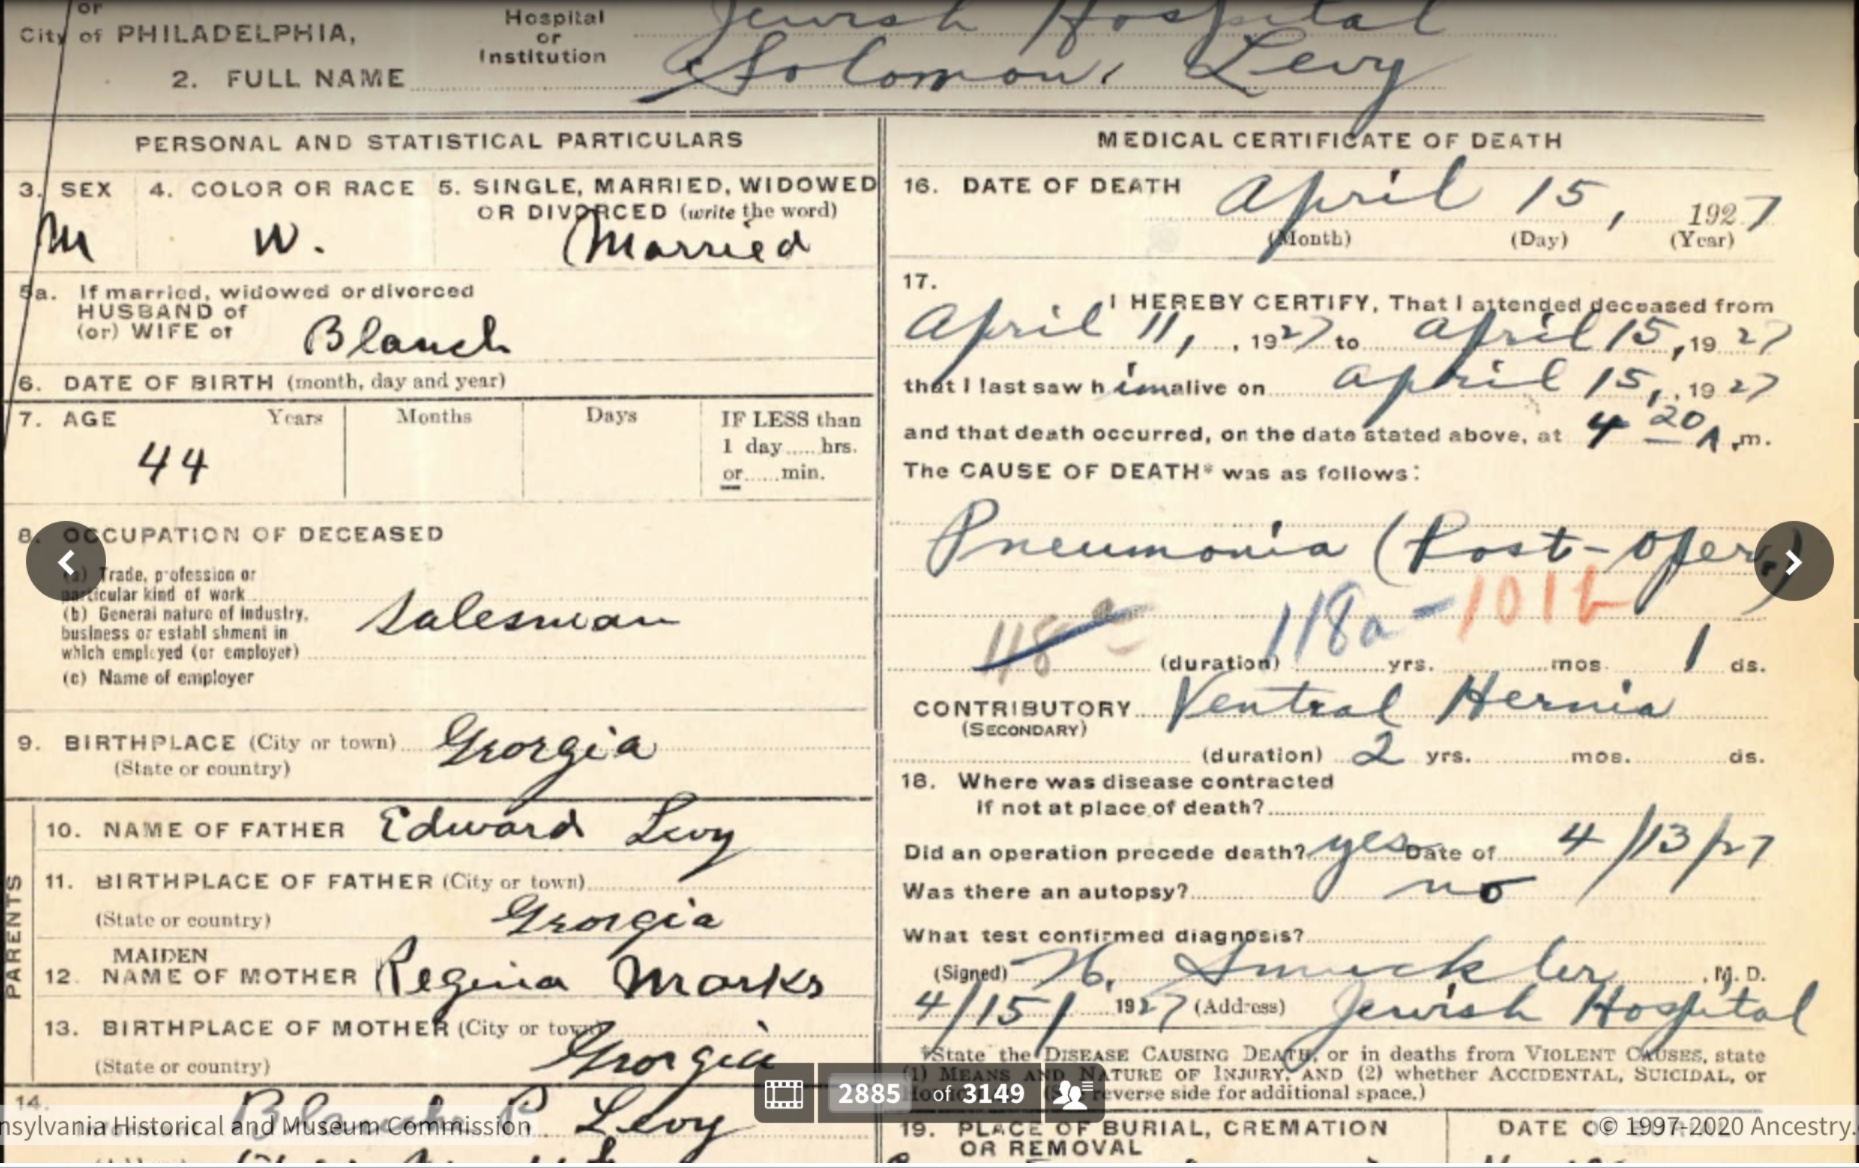 or
City of PHILADELPHIA,
Hospital
or
Institution
Jewish Hospital
2. FULL NAME Solomon Levy
PERSONAL AND STATISTICAL PARTICULARS
3. SEX
M
4. COLOR OR RACE
W.
5. SINGLE, MARRIED, WIDOWED
OR DIVORCED (write the word)
Married
5a. If married, widowed or divorced
HUSBAND of
(or) WIFE of Blanch
6. DATE OF BIRTH (month, day and year)
7. AGE Years Months Days
44
IF LESS than
1 day......hrs.
or......min.
8. OCCUPATION OF DECEASED
(a) Trade, profession or
particular kind of work
(b) General nature of Industry,
business or establishment in
which employed (or employer)
Salesman
(c) Name of employer
9. BIRTHPLACE (City or town) Georgia
(State or country)
PARENTS
10. NAME OF FATHER Edward Levy
11. BIRTHPLACE OF FATHER (City or town)
(State or country) Georgia
MAIDEN
12. NAME OF MOTHER Regina Marks
13. BIRTHPLACE OF MOTHER (City or town)
(State or country) Georgia
14.
Informant Blanche P. Levy
MEDICAL CERTIFICATE OF DEATH
16. DATE OF DEATH April 15, 1927
(Month) (Day) (Year)
17.
I HEREBY CERTIFY, That I attended deceased from
April 11, , 1927 to April 15, 1927
that I last saw him alive on April 15, 1927
and that death occurred, on the date stated above, at 4 20 A.m.
The CAUSE OF DEATH* was as follows:
Pneumonia (Post-oper.)
118a 118a - 101b
(duration) yrs. mos. 1 ds.
CONTRIBUTORY Ventral Hernia
(SECONDARY)
(duration) 2 yrs. mos. ds.
18. Where was disease contracted
if not at place of death?
Did an operation precede death? yes Date of 4/13/27
Was there an autopsy? no
What test confirmed diagnosis?
(Signed) Smuckler, M. D.
4/15/ 1927 (Address) Jewish Hospital
*State the DISEASE CAUSING DEATH, or in deaths from VIOLENT CAUSES, state
(1) MEANS AND NATURE OF INJURY, AND (2) whether ACCIDENTAL, SUICIDAL, or
reverse side for additional space.)
19. PLACE OF BURIAL, CREMATION
OR REMOVAL
DATE OF
2885 of 3149
nsylvania Historical and Museum Commission
© 1997-2020 Ancestry.